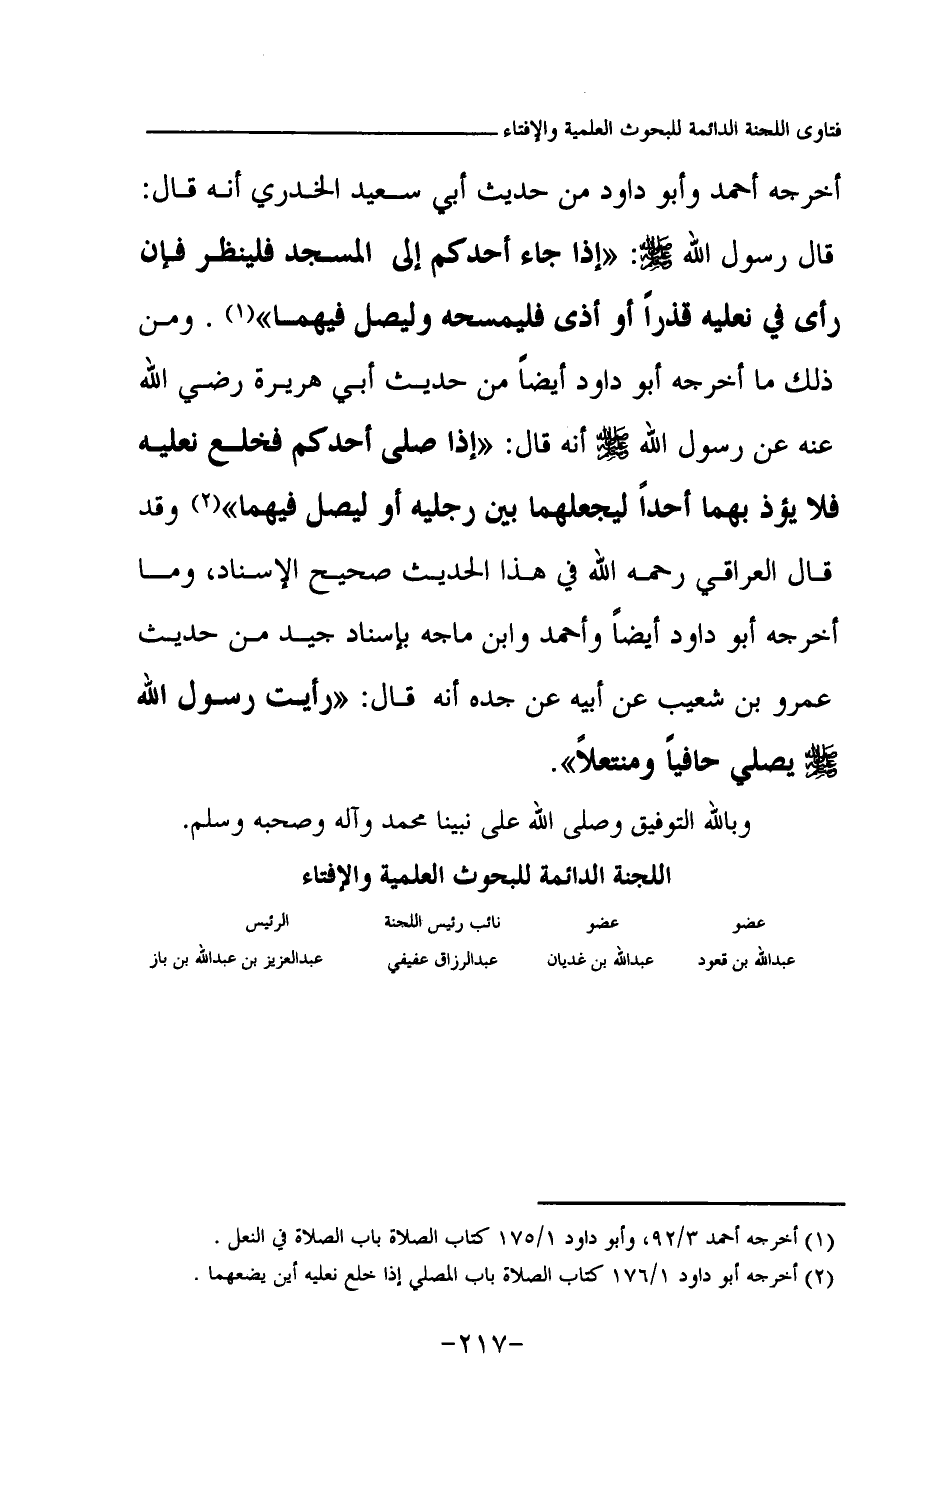 فتاوى اللجنة الدائمة للبحوث العلمية والإفتاء
أخرجه أحمد وأبو داود من حديث أبي سعيد الخدري أنه قال:
قال رسول الله ﷺ: «إذا جاء أحدكم إلى المسجد فلينظر فإن
رأى في نعليه قذراً أو أذى فليمسحه وليصل فيهما»(١) . ومن
ذلك ما أخرجه أبو داود أيضاً من حديث أبي هريرة رضي الله
عنه عن رسول الله ﷺ أنه قال: «إذا صلى أحدكم فخلع نعليه
فلا يؤذ بهما أحداً ليجعلهما بين رجليه أو ليصل فيهما»(٢) وقد
قال العراقي رحمه الله في هذا الحديث صحيح الإسناد، وما
أخرجه أبو داود أيضاً وأحمد وابن ماجه بإسناد جيد من حديث
عمرو بن شعيب عن أبيه عن جده أنه قال: «رأيت رسول الله
ﷺ يصلي حافياً ومنتعلاً».
وبالله التوفيق وصلى الله على نبينا محمد وآله وصحبه وسلم.
اللجنة الدائمة للبحوث العلمية والإفتاء
عضو عضو نائب رئيس اللجنة الرئيس
عبدالله بن قعود عبدالله بن غديان عبدالرزاق عفيفي عبدالعزيز بن عبدالله بن باز
(١) أخرجه أحمد ٩٢/٣، وأبو داود ١٧٥/١ كتاب الصلاة باب الصلاة في النعل .
(٢) أخرجه أبو داود ١٧٦/١ كتاب الصلاة باب المصلي إذا خلع نعليه أين يضعهما .
-٢١٧-